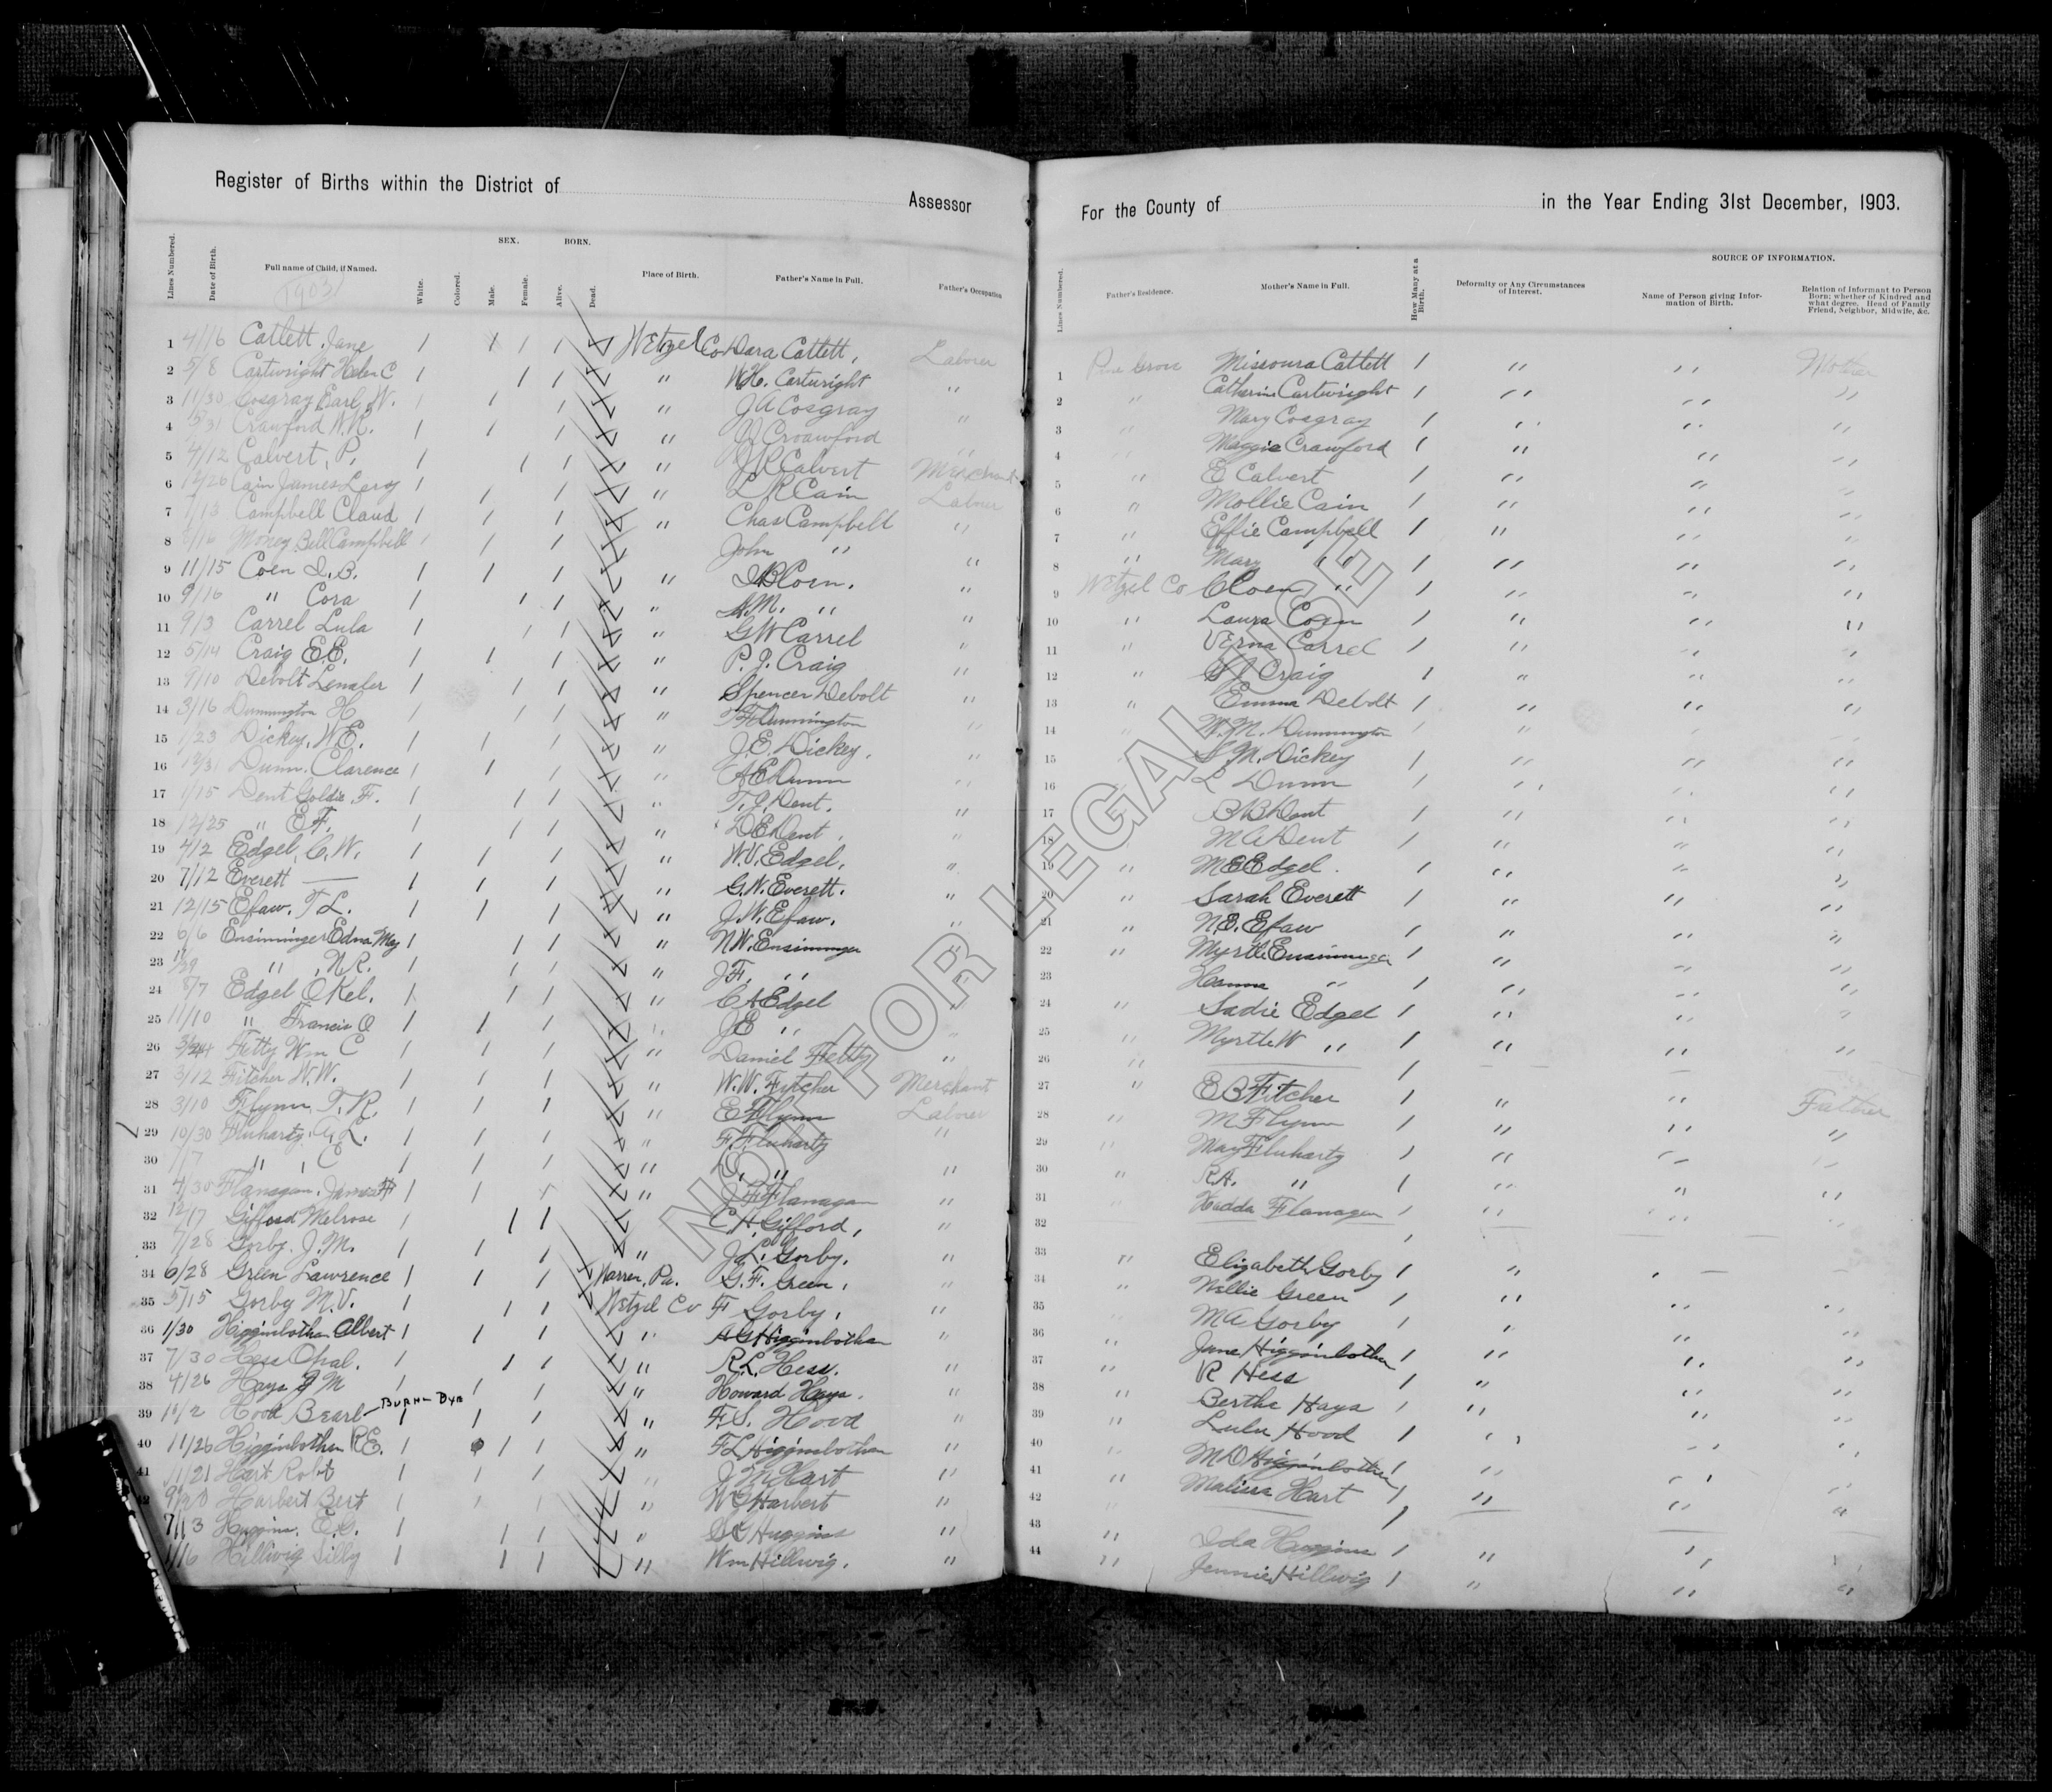 Register of Births within the District of Assessor
Lines Numbered. Date of Birth. Full name of Child, if Named. White. Colored. SEX. Male. Female. BORN. Alive. Dead. Place of Birth. Father's Name in Full. Father's Occupation
1903
1 4/16 Catlett, Jane Wetzel Co Dara Catlett, Labner
2 5/8 Cartwright Helen C " W.H. Cartwright "
3 11/30 Cosgray Earl W. " J A Cosgray "
4 Crawford " Croawford "
5 4/12 Calvert, P. " J R Calvert Merchant
6 12/26 Cain James Leroy " L R Cain Labner
7 Campbell Claud " Chas Campbell "
8 Money Bell Campbell John " "
9 11/15 Coen I. B. " I B Coen. "
10 9/16 " Cora " M. " "
11 9/3 Carrel Lula " G W Carrel "
12 5/14 Craig E.E. " P. J. Craig "
13 9/10 Debolt Lenafer " Spencer Debolt "
14 3/16 Dunnington H " Dunnington "
15 1/23 Dickey, W E. " J. E. Dickey, "
16 12/31 Dunn, Clarence " A E Dunn "
17 1/15 Dent Goldie F. " T. J. Dent. "
18 12/25 " E F. " D E Dent, "
19 4/2 Edgel, C. W. " W. V. Edgel, "
20 7/12 Everett — " G. W. Everett. "
21 12/15 Efaw. T L. " J. W. Efaw. "
22 6/6 Ensimminger Edna May " N W. Ensimminger "
23 11/29 " , N R. " J F. "
24 8/7 Edgel Okel. " C A Edgel
25 11/10 " Francis O " J E " "
26 Fetty Wm C " Daniel Fetty "
27 3/12 Fitcher W. W. " W. W. Fytcher Merchant
28 3/10 Flynn, T. R. " E Flynn Labner
29 10/30 Fluharty, A. L. " F. Fluharty "
30 1/7 " , C " D. " "
31 4/30 Flanagan, James F " J F Flanagan "
32 12/17 Gifford Melrose C H Gifford, "
33 7/28 Gorby. J. M. " J. L. Gorby. "
34 6/28 Green Lawrence Warren, Pa. G. F. Green, "
35 5/15 Gorby M. V. Wetzel Co F Gorby, "
36 1/30 Higginbotham Albert " A G Higginbotham "
37 7/30 Hess Opal. " R. L. Hess. "
38 4/26 Hays J M " Howard Hays. "
39 11/2 Hood Bearl — BURH-DYR " F. S. Hood "
40 11/26 Higginbotham R E. " F L Higginbotham "
41 11/21 Hart Robt " J M Hart "
42 9/20 Harbert Bert " W E Harbert "
7/13 Huggins, E. G. " S G Huggins "
1/16 Hilliwig Lilly " Wm Hillwig. "
For the County of in the Year Ending 31st December, 1903.
Lines Numbered. Father's Residence. Mother's Name in Full. How Many at a Birth. Deformity or Any Circumstances of Interest. SOURCE OF INFORMATION. Name of Person giving Information of Birth. Relation of Informant to Person Born; whether of Kindred and what degree. Head of Family Friend, Neighbor, Midwife, &c.
1 Pine Grove Missoura Catlett 1 " " Mother
2 " Catherine Cartwright 1 " " "
3 " Mary Cosgray 1 " " "
4 " Maggie Crawford 1 " " "
5 " E Calvert 1 " " "
6 " Mollie Cain 1 " " "
7 " Effie Campbell 1 " " "
8 " Mary " 1 " " "
9 Wetzel Co C Coen " 1 " " "
10 " Laura Coen 1 " " "
11 " Verna Carrel 1 " " "
12 " S J Craig 1 " " "
13 " Emma Debolt 1 " " "
14 " W. M. Dunnington 1 " "
15 S. M. Dickey 1 " " "
16 L Dunn 1 " " "
17 " B B Dent 1 " " "
18 " M A Dent 1 " " "
19 " M E Edgel. 1 " " "
20 " Sarah Everett 1 " " "
21 " N. B. Efaw 1 " " "
22 " Myrtle Ensiminger 1 " " "
23 Hanna " 1 " " "
24 " Sadie Edgel 1 " " "
25 " Myrtle W " 1 " " "
26 " — 1 — — —
27 " E B Fitcher 1 " " Father
28 " M Flynn 1 " " "
29 " May Fluharty 1 " "
30 " R A. " 1 " " "
31 Hadda Flanagan 1 " "
32 — 1 — — —
33 " Elizabeth Gorby 1 "
34 " Nellie Green 1 " " "
35 " M A Gorby 1 " " "
36 " Jane Higginbotham 1 " " "
37 " R Hess 1 " " "
38 " Bertha Hays 1 " " "
39 " Lulu Hood 1 " "
40 " M O Higginbotham 1 " " "
41 " Malissa Hart 1 " " "
42 — 1 — — —
43 " Ida Huggins 1 " " "
44 " Jennie Hillwig 1 " " "
NOT FOR LEGAL USE